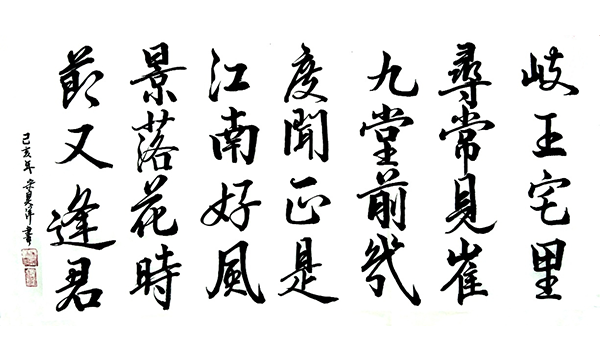 岐王宅里
尋常見崔
九堂前幾
度聞正是
江南好風
景落花時
節又逢君
己亥年 書